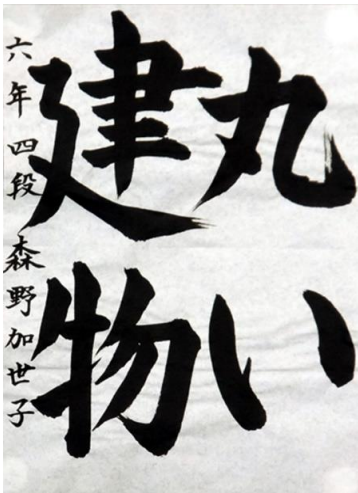 丸い
建物
六年 四段 森野加世子